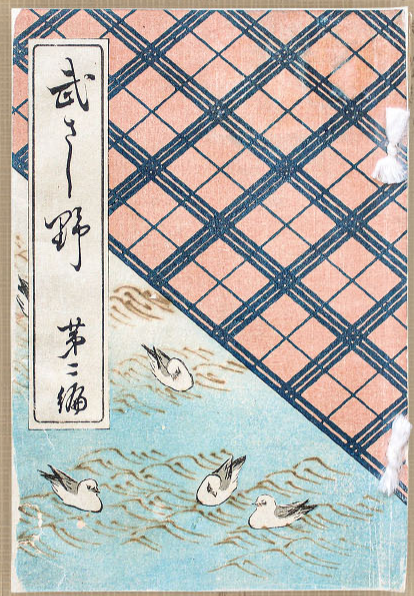 武さし野
第二編